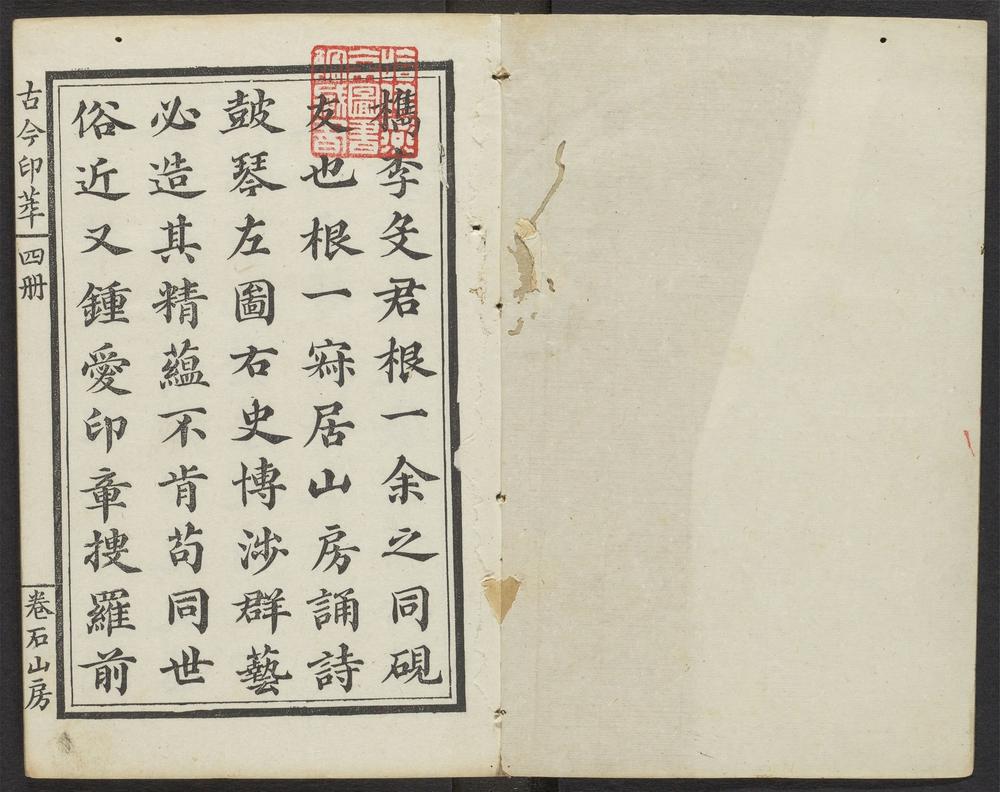 檇李殳君根一余之同硯
友也根一居山房誦詩
皷琴左圖右史博涉群藝
必造其精蘊不肯苟同世
俗近又鍾愛印章搜羅前
古今印萃 四册 卷石山房
哈佛燕
京圖書
館藏